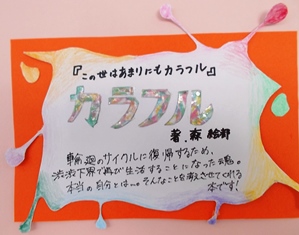 『この世はあまりにもカラフル』
カラフル
著.森 絵都
輪廻のサイクルに復帰するため、
渋渋下界で再び生活することになった魂。
本当の自分とは…。そんなことを考えさせてくれる
本です!